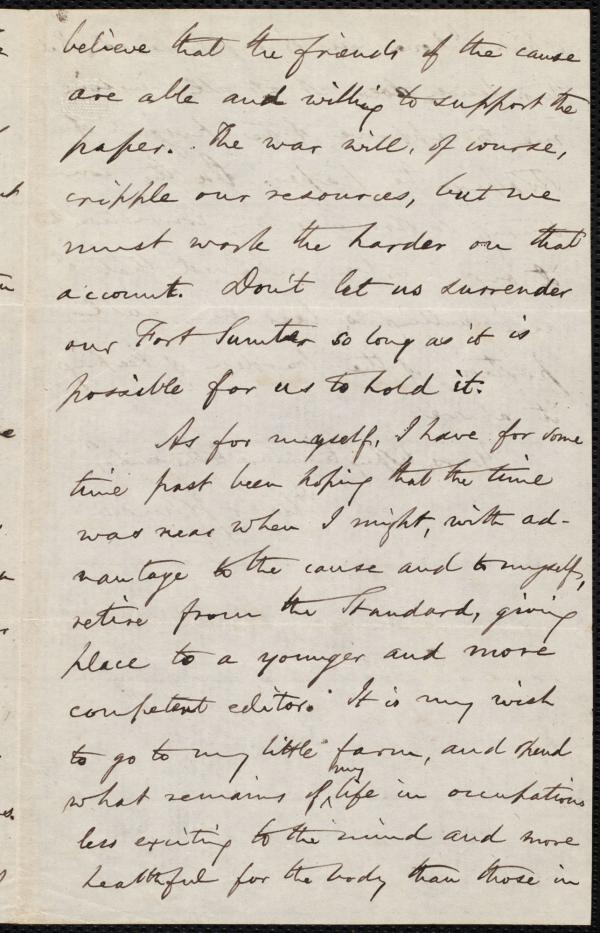 believe that the friends of the cause
are able and willing to support the
paper. The war will, of course,
cripple our resources, but we
must work the harder on that
account. Don't let us surrender
our Fort Sumter so long as it is
possible for us to hold it.
As for myself, I have for some
time past been hoping that the time
was near when I might, with ad-
vantage to the cause and to myself,
retire from the Standard, giving
place to a younger and more
competent editor. It is my wish
to go to my little farm, and spend
what remains of my life in occupations
less exciting to the mind and more
healthful for the body than those in